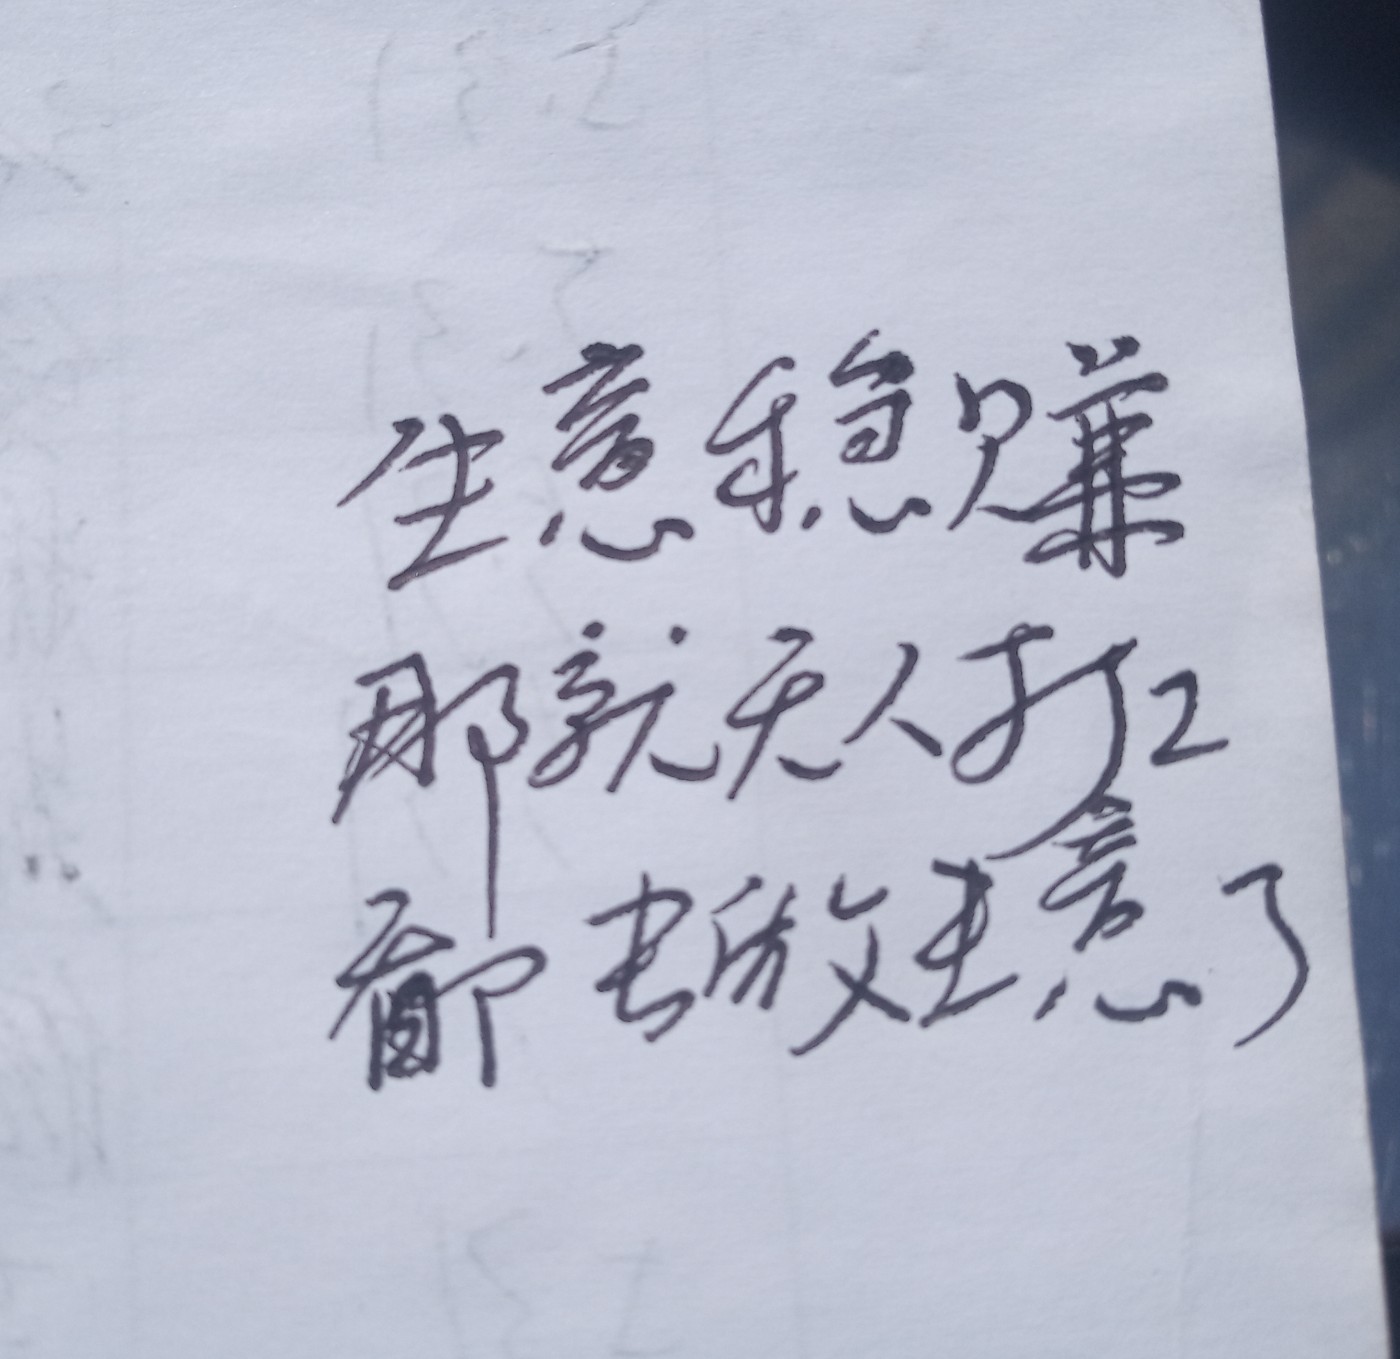 生意稳赚
那就无人打工
都去做生意了